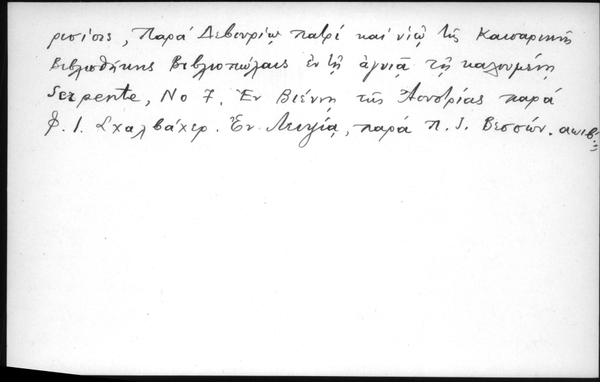 ρισίοις, Παρά Δεβουρίῳ πατρί καί υἱῷ τῆς Καισαρικῆς
βιβλιοθήκης βιβλιοπώλαις ἐν τῇ ἀγυιᾷ τῇ καλουμένῃ
Serpente, No 7. Ἐν Βιέννῃ τῆς Αουστρίας παρά
Φ. Ι. Σχαλβάχερ. Ἐν Λειψίᾳ, παρά Π. Ι. Βεσσών.